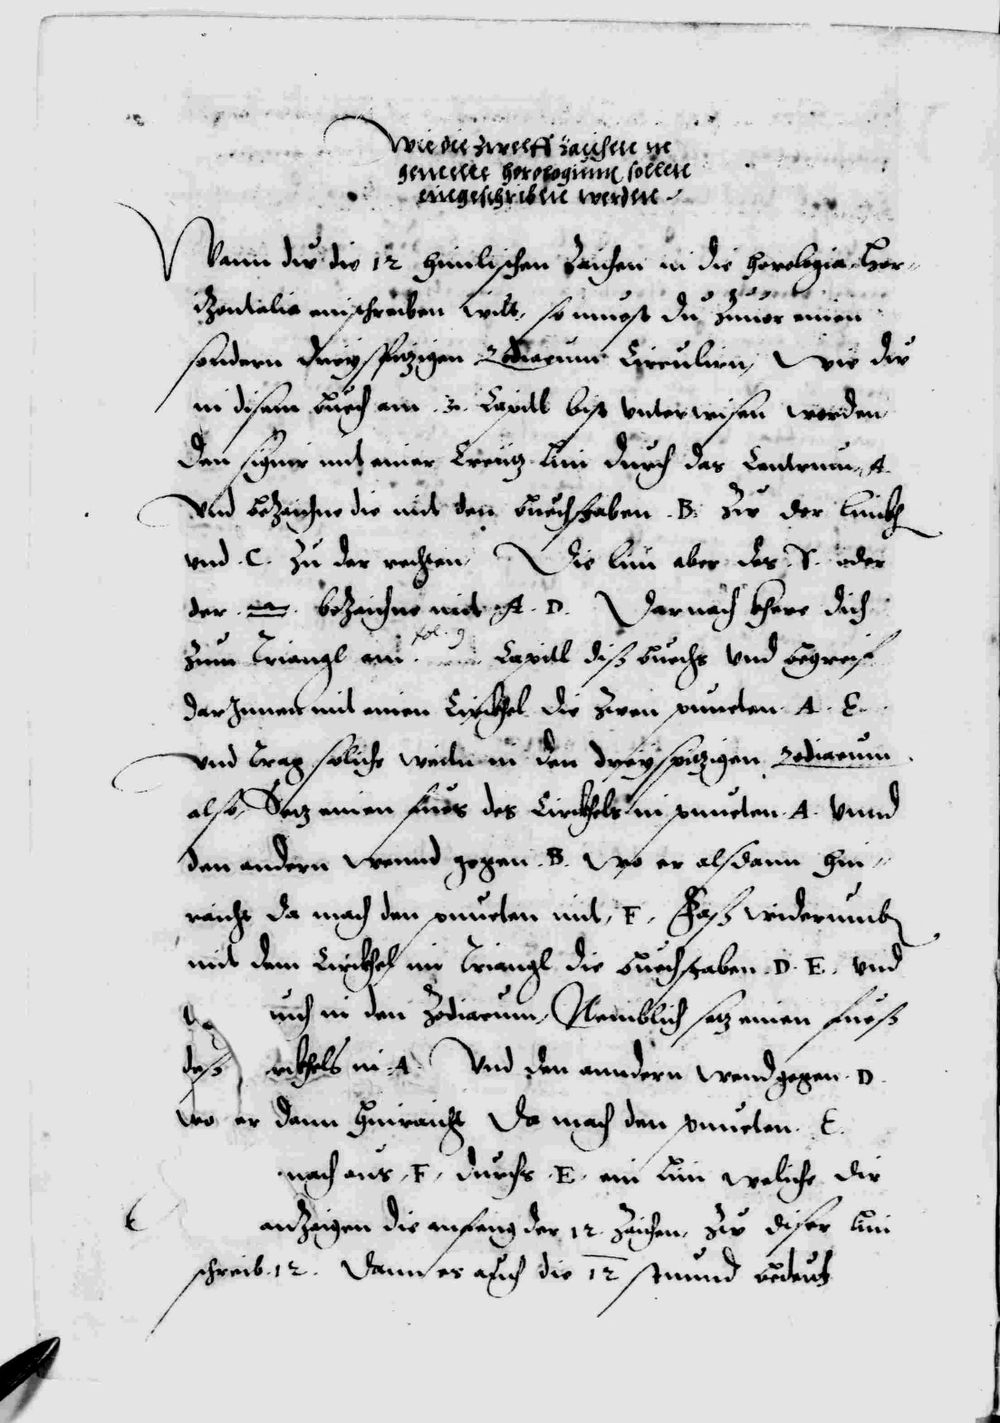 Wie die zwelff zaichen in
gemelte horologium sollen
eingeschriben werden
Wann du die 12 himlischen zaichen in die horologia Hor-
izontalia einschreiben wilt, so muest du zuuor einen
sondern dreyspizigen Zodiacum Circulirn, wie du
in disem buech am 3. Capitl bist unterwisen worden
den signir mit einer Creutz lini durch das Centrum A.
Und bezaichne die mit den buechstaben .B. zu der linkh
und .C. zu der rechten Die lini aber des S. oder
der ♎ bezaichne mit A. D. Darnach khere dich
fol. 9
zum Triangl am Capitl diß buechs und begreif
darInnen mit einen Cirkhel die zwen puncten A. E.
und trag soliche weiten in den dreyspizigen Zodiacum
also, Setz einen fues des Cirkhels in puncten A. unnd
den andern wennd gegen .B. wo er alsdann hin-
raicht da mach den puncten mit, F, Faß widerumb
mit dem Cirkhel im Triangl die buechstaben .D. E. und
uch in den Zodiacum, Nemblich setz einen fueß
deß rkhels in A. Und den anndern wend gegen .D.
wo er dann hinraicht Da mach den puncten. E.
nach aus .F. durchs .E. ein lini weliche dir
anzaigen die anfeng der 12. zaichen, zu diser lini
schreib .12. Dann es auch die 12 stund bedeut